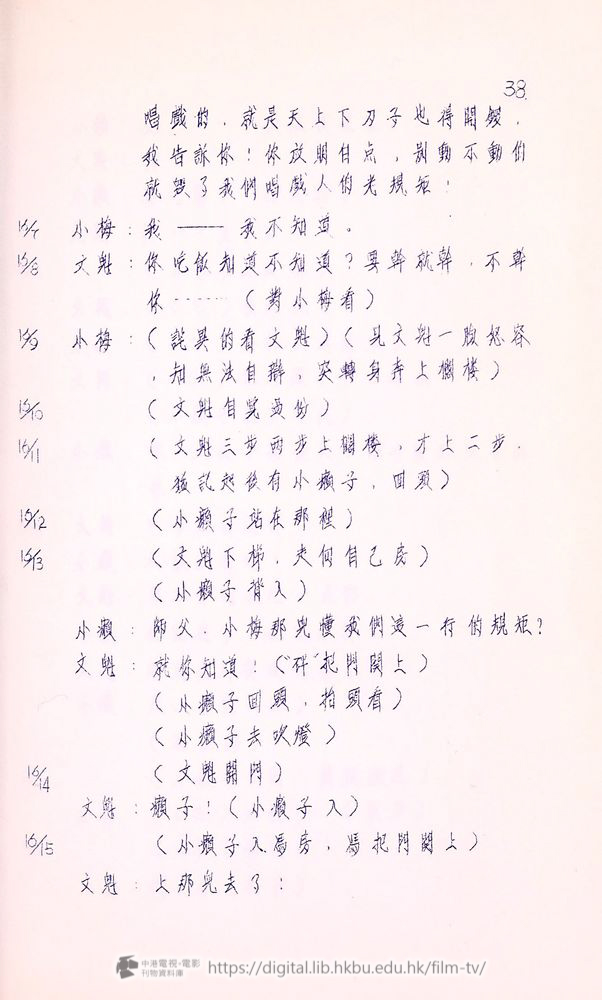 38.
唱戲的，就是天上下刀子也得開鑼，
我告訴你！你放明白点，別動不動們
就毀了我們唱戲人的老規矩！
15/7 小梅：我 —— 我不知道。
15/8 文魁：你吃飯知道不知道？要幹就幹，不幹
你……（對小梅看）
15/9 小梅：（詫異的看文魁）（見文魁一臉怒容
，知無法自辯，突轉身奔上擱樓）
15/10 （文魁自覺過份）
15/11 （文魁三步兩步上擱樓，才上二步，
猛記起後有小癩子，回頭）
15/12 （小癩子站在那裡）
15/13 （文魁下梯，走向自己房）
（小癩子背入）
小癩：師父，小梅那兒懂我們這一行的規矩？
文魁：就你知道！（"砰"把門関上）
（小癩子回頭，抬頭看）
（小癩子去吹燈）
15/14 （文魁開門）
文魁：癩子！（小癩子入）
15/15 （小癩子入馮房，馮把門関上）
文魁：上那兒去了！
中港電視·電影
刊物資料庫
https://digital.lib.hkbu.edu.hk/film-tv/